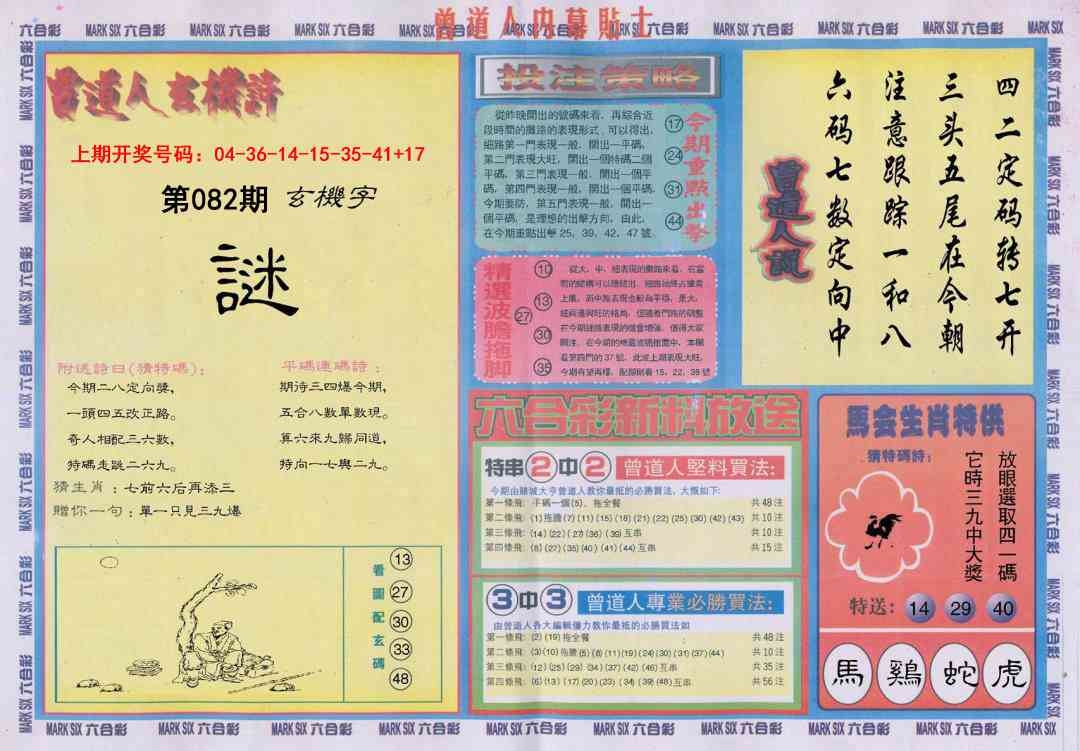 曾道人内幕貼士
MARK SIX 六合彩
曾道人玄機詩
上期开奖号码：04-36-14-15-35-41+17
第082期 玄機字
謎
附送詩曰(猜特碼)：
今期二八定向獎，
一頭四五改正路。
奇人相配三六數，
特碼走跳二六九。
平碼連碼詩：
期待三四爆今期，
五合八數單數現。
真六來九歸同道，
特向一七與二九。
猜生肖：七前六后再添三
贈你一句：單一只見三九爆
看圖配玄碼
13
27
30
33
48
投注策略
從昨晚開出的號碼來看，再綜合近
段時間的攤諒的表現形式，可以得出，
細路第一門表現一般，開出一平碼，
第二門表現大旺，開出一個特碼二個
平碼，第三門表現一般，開出一個平
碼，第四門表現一般，開出一個平碼，
今期要防，第五門表現一般，開出一
個平碼，是理想的出擊方向，由此，
在今期重點出擊 25、39、42、47 號
今期重點出擊
17
24
31
44
精選波膽拖脚
10
13
27
30
35
看第四門的 37 號，此波上期表現大旺，
今期有望再檬，配腳則看 15、22、39 號
曾道人說
四二定码转七开
三头五尾在今朝
注意跟踪一和八
六码七数定向中
六合彩新料放送
特串2中2 曾道人堅料買法：
今期由賭城大亨曾道人教你最抵的必勝買法，大概如下：
第一條飛：平碼一個(5)，拖全餐 共 48 注
第二條飛：(1)拖膽(7)(11)(15)(18)(21)(22)(25)(30)(42)(43) 共 10 注
第三條飛：(14)(22)(27)(36)(39)互串 共 10 注
第四條飛：(8)(27)(35)(40)(41)(44)互串 共 15 注
3中3 曾道人專業必勝買法：
由曾道人各大編輯僅力教你最抵的必勝買法如
第一條飛：(2)(19)拖全餐 共 48 注
第二條飛：(3)(10)拖膽(5)(8)(11)(19)(24)(30)(31)(37)(44) 共 10 注
第三條飛：(12)(25)(29)(34)(37)(42)(46)互串 共 35 注
第四條飛：(6)(13)(17)(20)(23)(34)(39)(48)互串 共 56 注
馬会生肖特供
猜特碼詩：
放眼選取四一碼
它時三九中大獎
特送：14 29 40
馬 鷄 蛇 虎